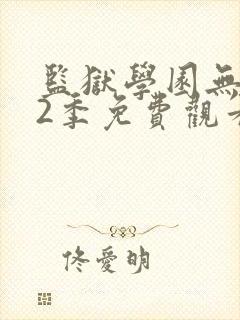 監獄學園無
2季免費觀看
佟愛明